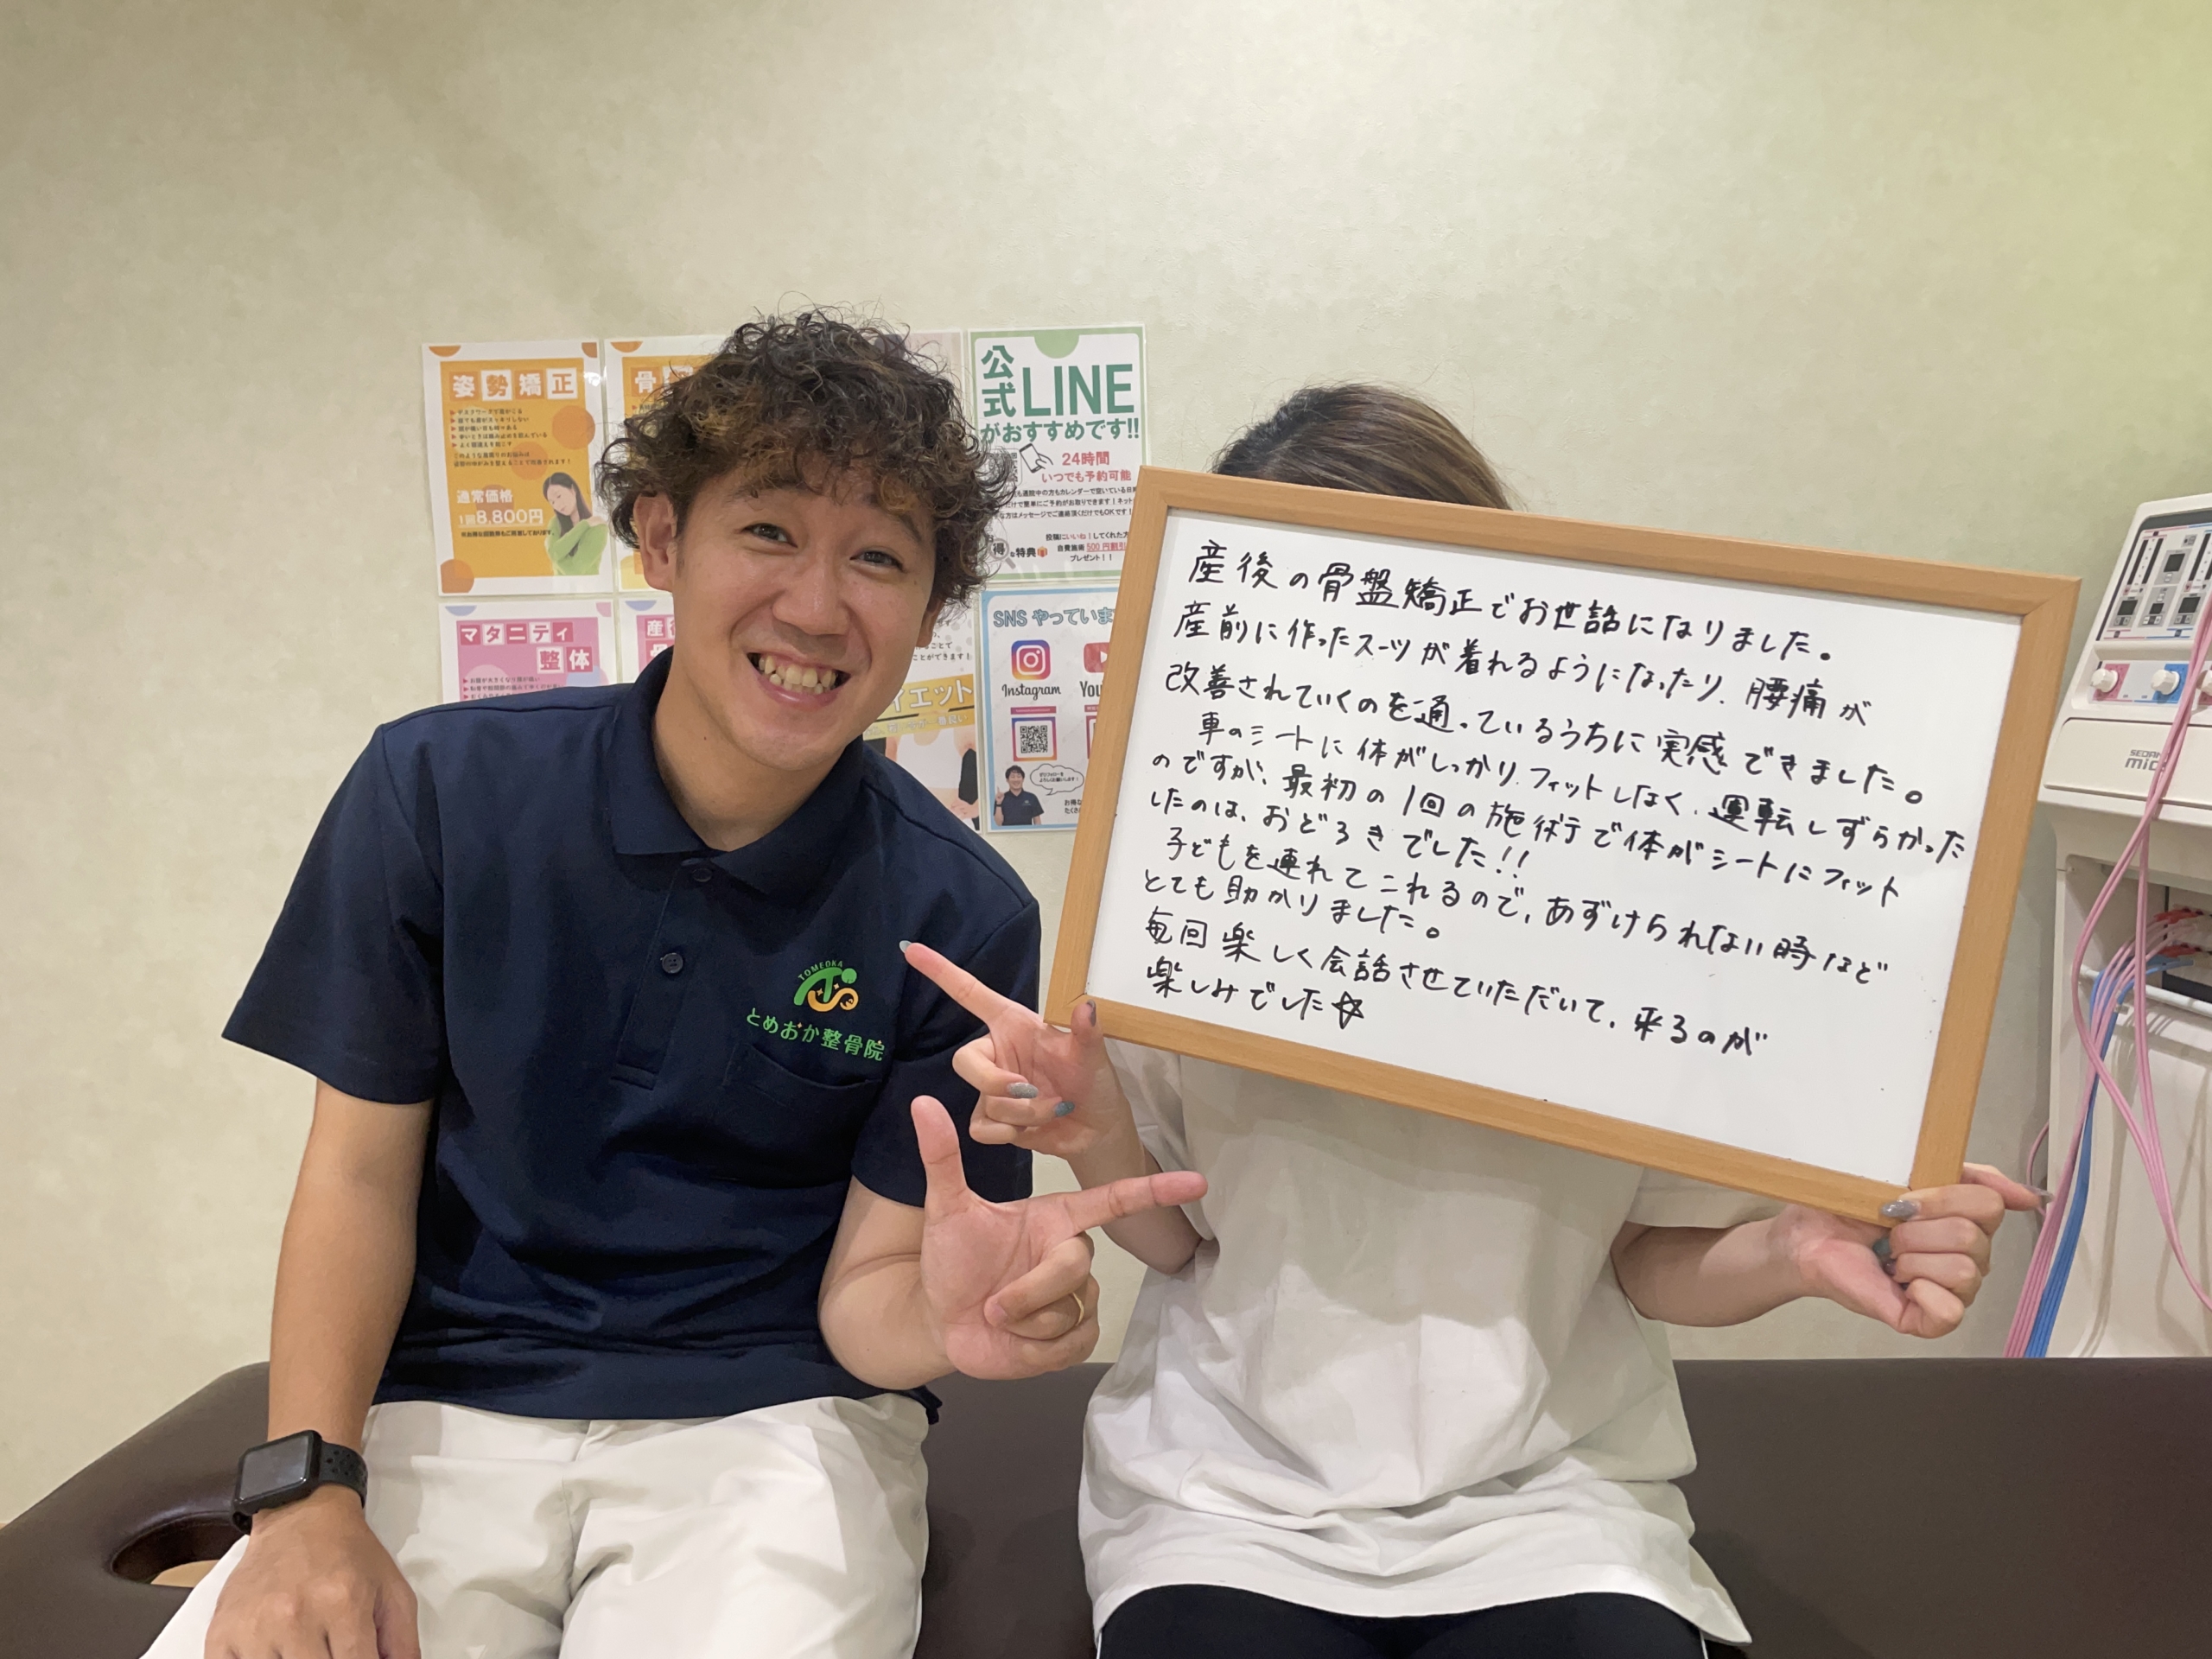 姿勢矯正
通常価格
1回8,800円
マタニティ
整体
公式LINE
がおすすめです!!
24時間
いつでも予約可能
自費施術500円割引
プレゼント!!
SNS やっていま
Instagram
You
TOMEOKA
とめおか整骨院
産後の骨盤矯正でお世話になりました。
産前に作ったスーツが着れるようになったり、腰痛が
改善されていくのを通っているうちに実感できました。
車のシートに体がしっかりフィットしなく、運転しずらかった
のですが、最初の1回の施術で体がシートにフィット
したのは、おどろきでした!!
子どもを連れてこれるので、あずけられない時など
とても助かりました。
毎回楽しく会話させていただいて、来るのが
楽しみでした☆